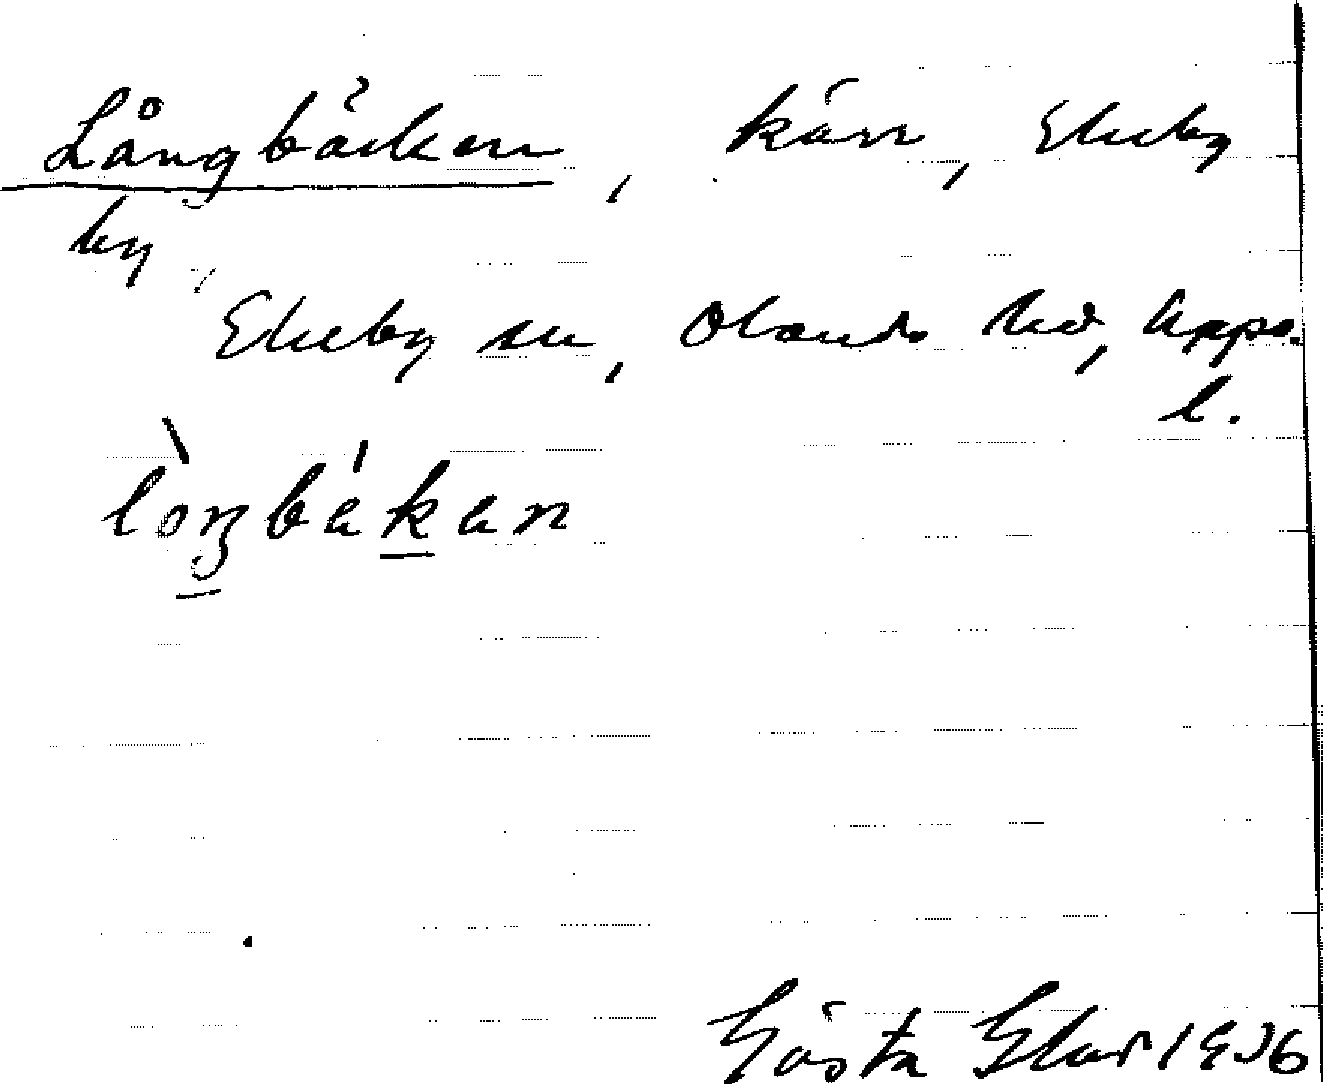 Långbäcken, kärr, Ekeby
by,
Ekeby sn, Olands hd, Upps.
l.
lòŋbákan
Gösta Elar 1936